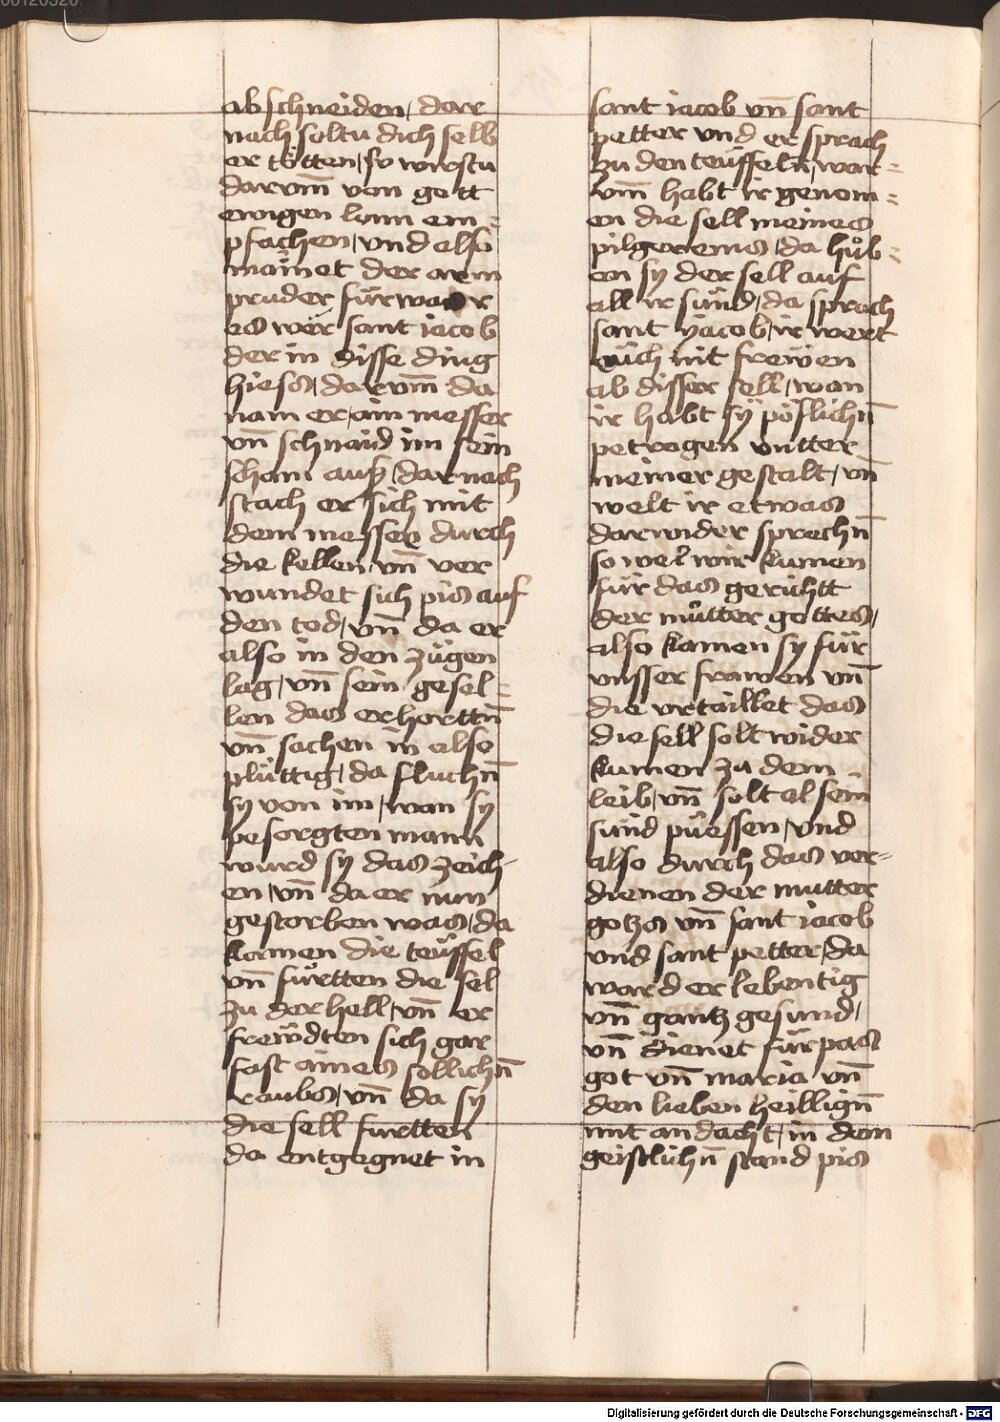 abschneiden, dar
nach soltu dich selb
er tötten, so wirstu
darvm̄ von gott
ewigen lonn em=
pfachen, vnd also
mainet der arm
pruder für war
es wer sant iacob
der in disse ding
hiess, darvm̄ da
nam er ain messer
vn̄ schnaid im sein
scham auß, dar nach
stach er sich mit
dem messer durch
die kellen, vn̄ ver
wundet sich pis auf
den tod, vn̄ da er
also in den zügen
lag, vn̄ sein gesel=
len das erhorttn̄
vn̄ sachen in also
plüttig, da fluchn̄
sy von im, wan sy
pesorgten mann
wurd sy das zeich-
en, vn̄ da er nun
gestorben was, da
kamen die teüffel
vn̄ fürtten die sel
zu der hell, vn̄ er
frewdten sich gar
fast aines sollichn̄
raubs, vn̄ da sy
die sell furtten
da entgegnet in
sant iacob vn̄ sant
petter vnd er sprach
zu den teüffeln̄, war=
vm̄ habt ir genom=
en die sell meines
pilgereins, da hůb=
en sy der sell auf
all ir sünd, da sprach
sant yacob, ir wert
eüch nit freẅen
ab disser sell, wan
ir habt sÿ pöslichn̄
petrogen vntter
meiner gestalt, vn̄
welt ir etwas
darwider sprechn̄
so wel wir kumen
für das gerichtt
der můtter gottes,
also kamen sy für
vnsser frawen vn̄
die vrtaillet das
die sell solt wider
kumen zu dem
leib, vn̄ solt al sein
sünd püessen, vnd
also durch das ver=
dienen der mutter
gotzs vn̄ sant iacob
vnd sant petter, da
ward er lebentig
vn̄ gantz gesund,
vn̄ dienet fürpas
got vn̄ maria vn̄
den lieben heillign̄
mit andacht, in dem
geistlichn̄ stand pis
Digitalisierung gefördert durch die Deutsche Forschungsgemeinschaft - DFG